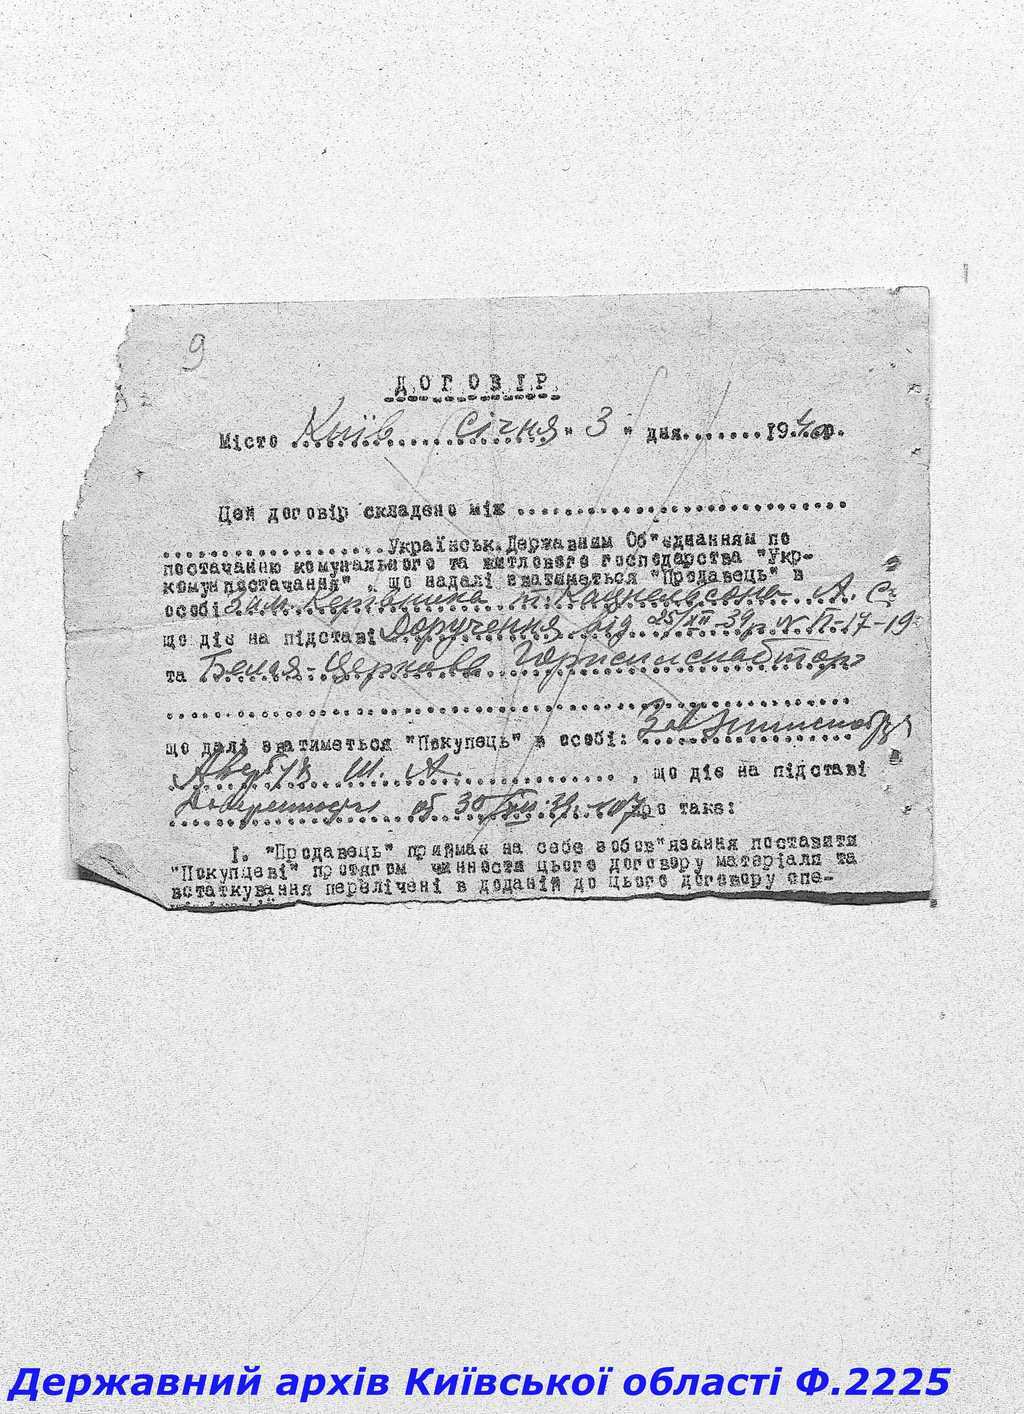 9
ДОГОВІР
Місто Київ Січня " 3 " дня........1940р.
Цей договір складено між ..............................
....................Українськ.Державним Об"єднанням по
постачанню комунального та житлового господарства "Укр-
комунпостачання", що надалі зватиметься "Продавець" в
особі зам. Керівника т. Кацнельсона А. С.
що діє на підставі Доручення від 25/XII-39р. № П-17-19
та Белая-Церковь
що далі зватиметься "Покупець" в особі:
Авербух Ш. А. , що діє на підставі
Доверенности от 30/XII-39 про таке:
I. "Продавець" приймає на себе зобов"язання поставити
"Покупцеві" протягом чинности цього договору матеріали та
встаткування перелічені в доданій до цього договору спе-
Державний архів Київської області Ф.2225